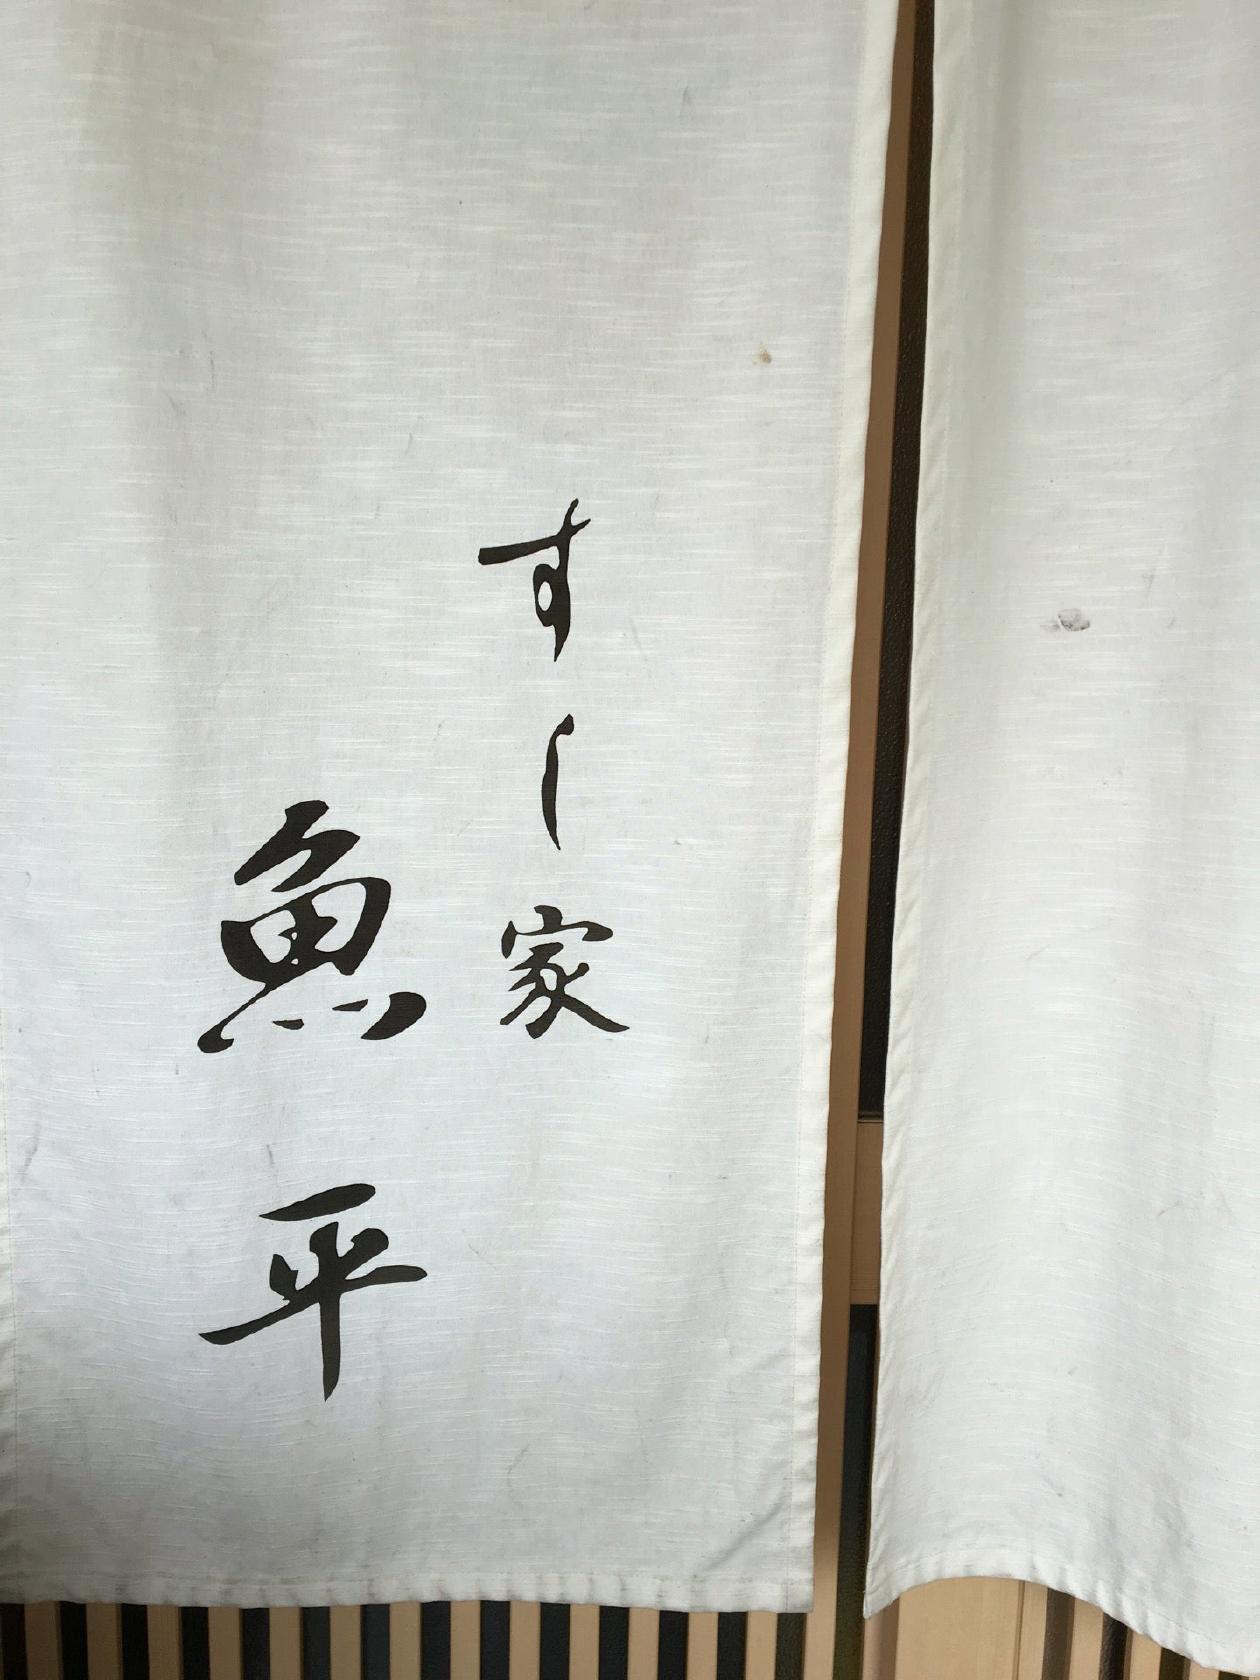 すし家
魚平